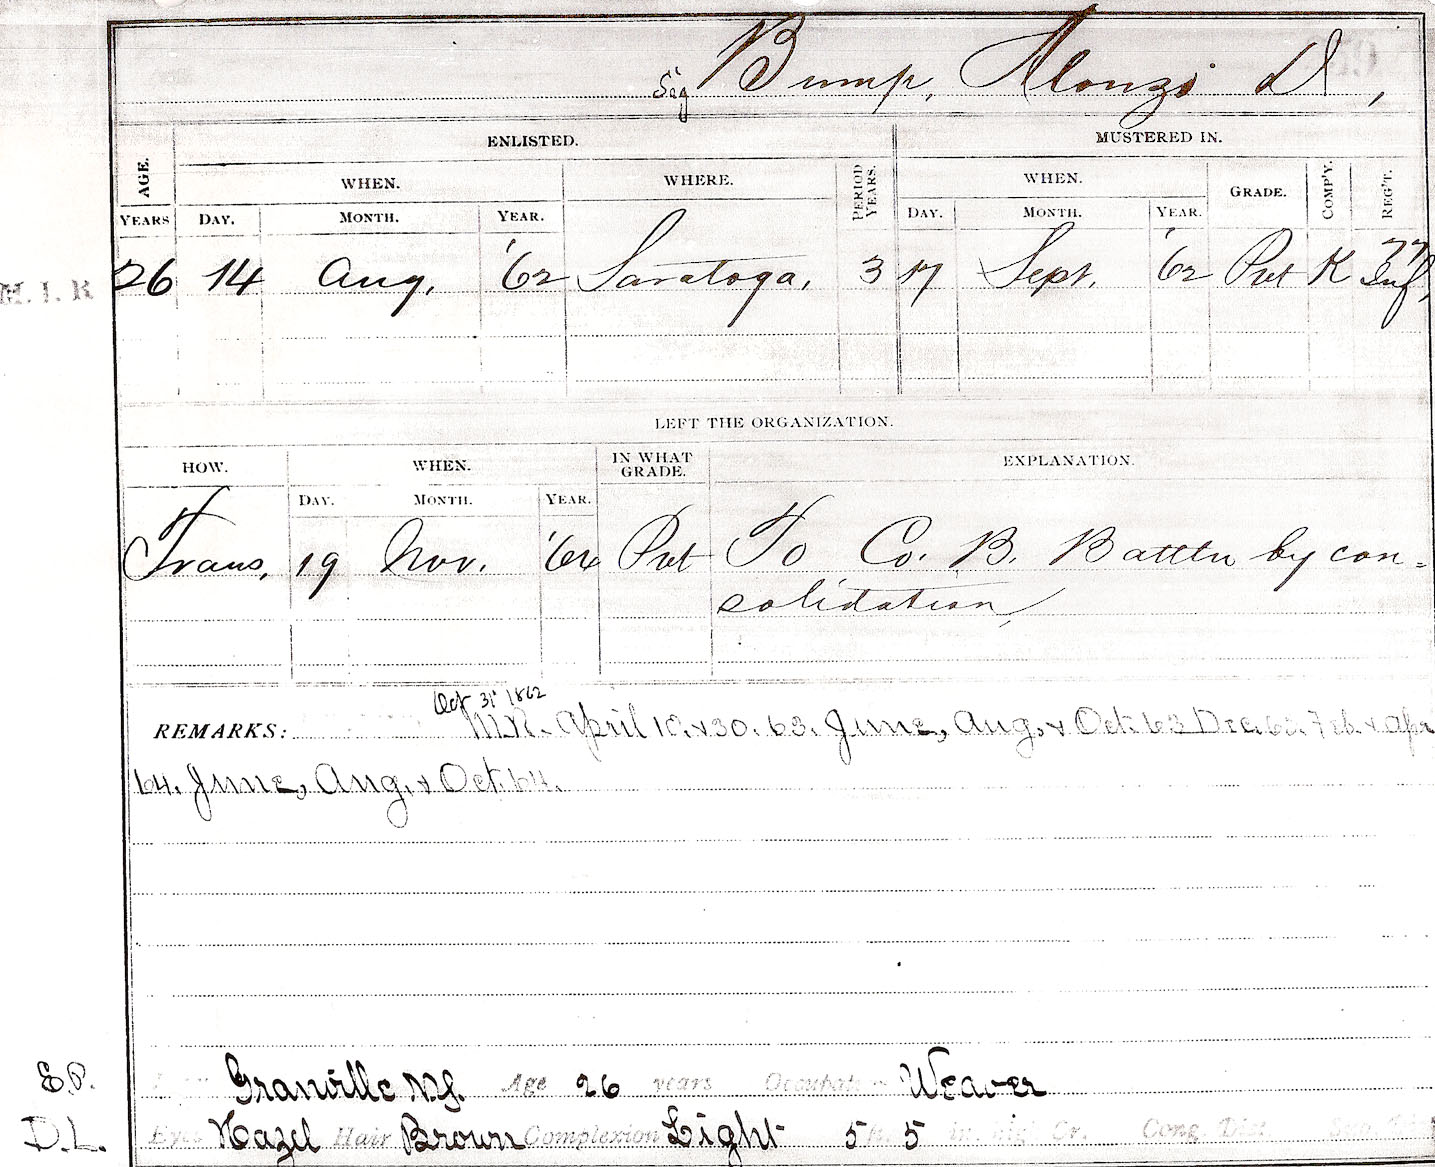 Sig Bump, Alonzo D,
ENLISTED. MUSTERED IN.
AGE. WHEN. WHERE. PERIOD YEARS. WHEN. GRADE. COMP'Y. REG'T.
YEARS DAY. MONTH. YEAR. DAY. MONTH. YEAR.
M. I. R 26 14 Aug. '62 Saratoga. 3 17 Sept. '62 Pvt K 77 Inf,
LEFT THE ORGANIZATION.
HOW. WHEN. IN WHAT GRADE. EXPLANATION.
DAY. MONTH. YEAR.
Trans. 19 Nov. '64 Pvt To Co. B. Battln by con-
solidation,
Oct 31 1862
REMARKS: M.R. April 10. & 30. 63. June, Aug. & Oct. 63 Dec. 63. Feb. & Apr
64. June, Aug. & Oct. 64.
E.P. Granville N.Y. Age 26 years Occupat Weaver
D.L. Eyes Hazel Hair Brown Complexion Light 5 ft. 5 in. high Gr. Cong. Dist